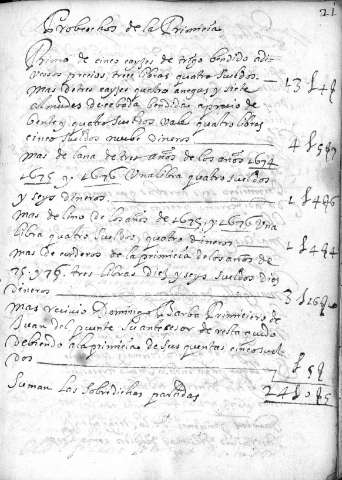 21
Probechos de la Primicia
Primo de cinco cayzes de trigo bendido a di
versos precios trece libras quatro sueldos — 13 £ 4 s
mas de tres cayzes quatro anegas y siete
almudes de cebada bendida a precio de
beynte y quatro sueldos vale quatro libras
cinco sueldos nuebe dineros — 4 £ 5 s 9
mas de lana de tres años de los años 1674
1675 y 1676 Una libra quatro sueldos
y seys dineros — 1 £ 4 s 6
mas de lino de los años de 1675 y 1676 Una
libra quatro sueldos, quatro dineros — 1 £ 4 s 4
mas de corderos de la primicia de los años de
75 y 76 tres libras diez y seys sueldos diez
dineros — 3 £ 16 s
mas recivio Domingo Primiciero de
Juan del puente Su antecesor de resta quedo
debiendo a la primicia de sus quentas cinco suel
dos — £ 5 s
Suman las sobredichas partidas 24 £ 0 s 5